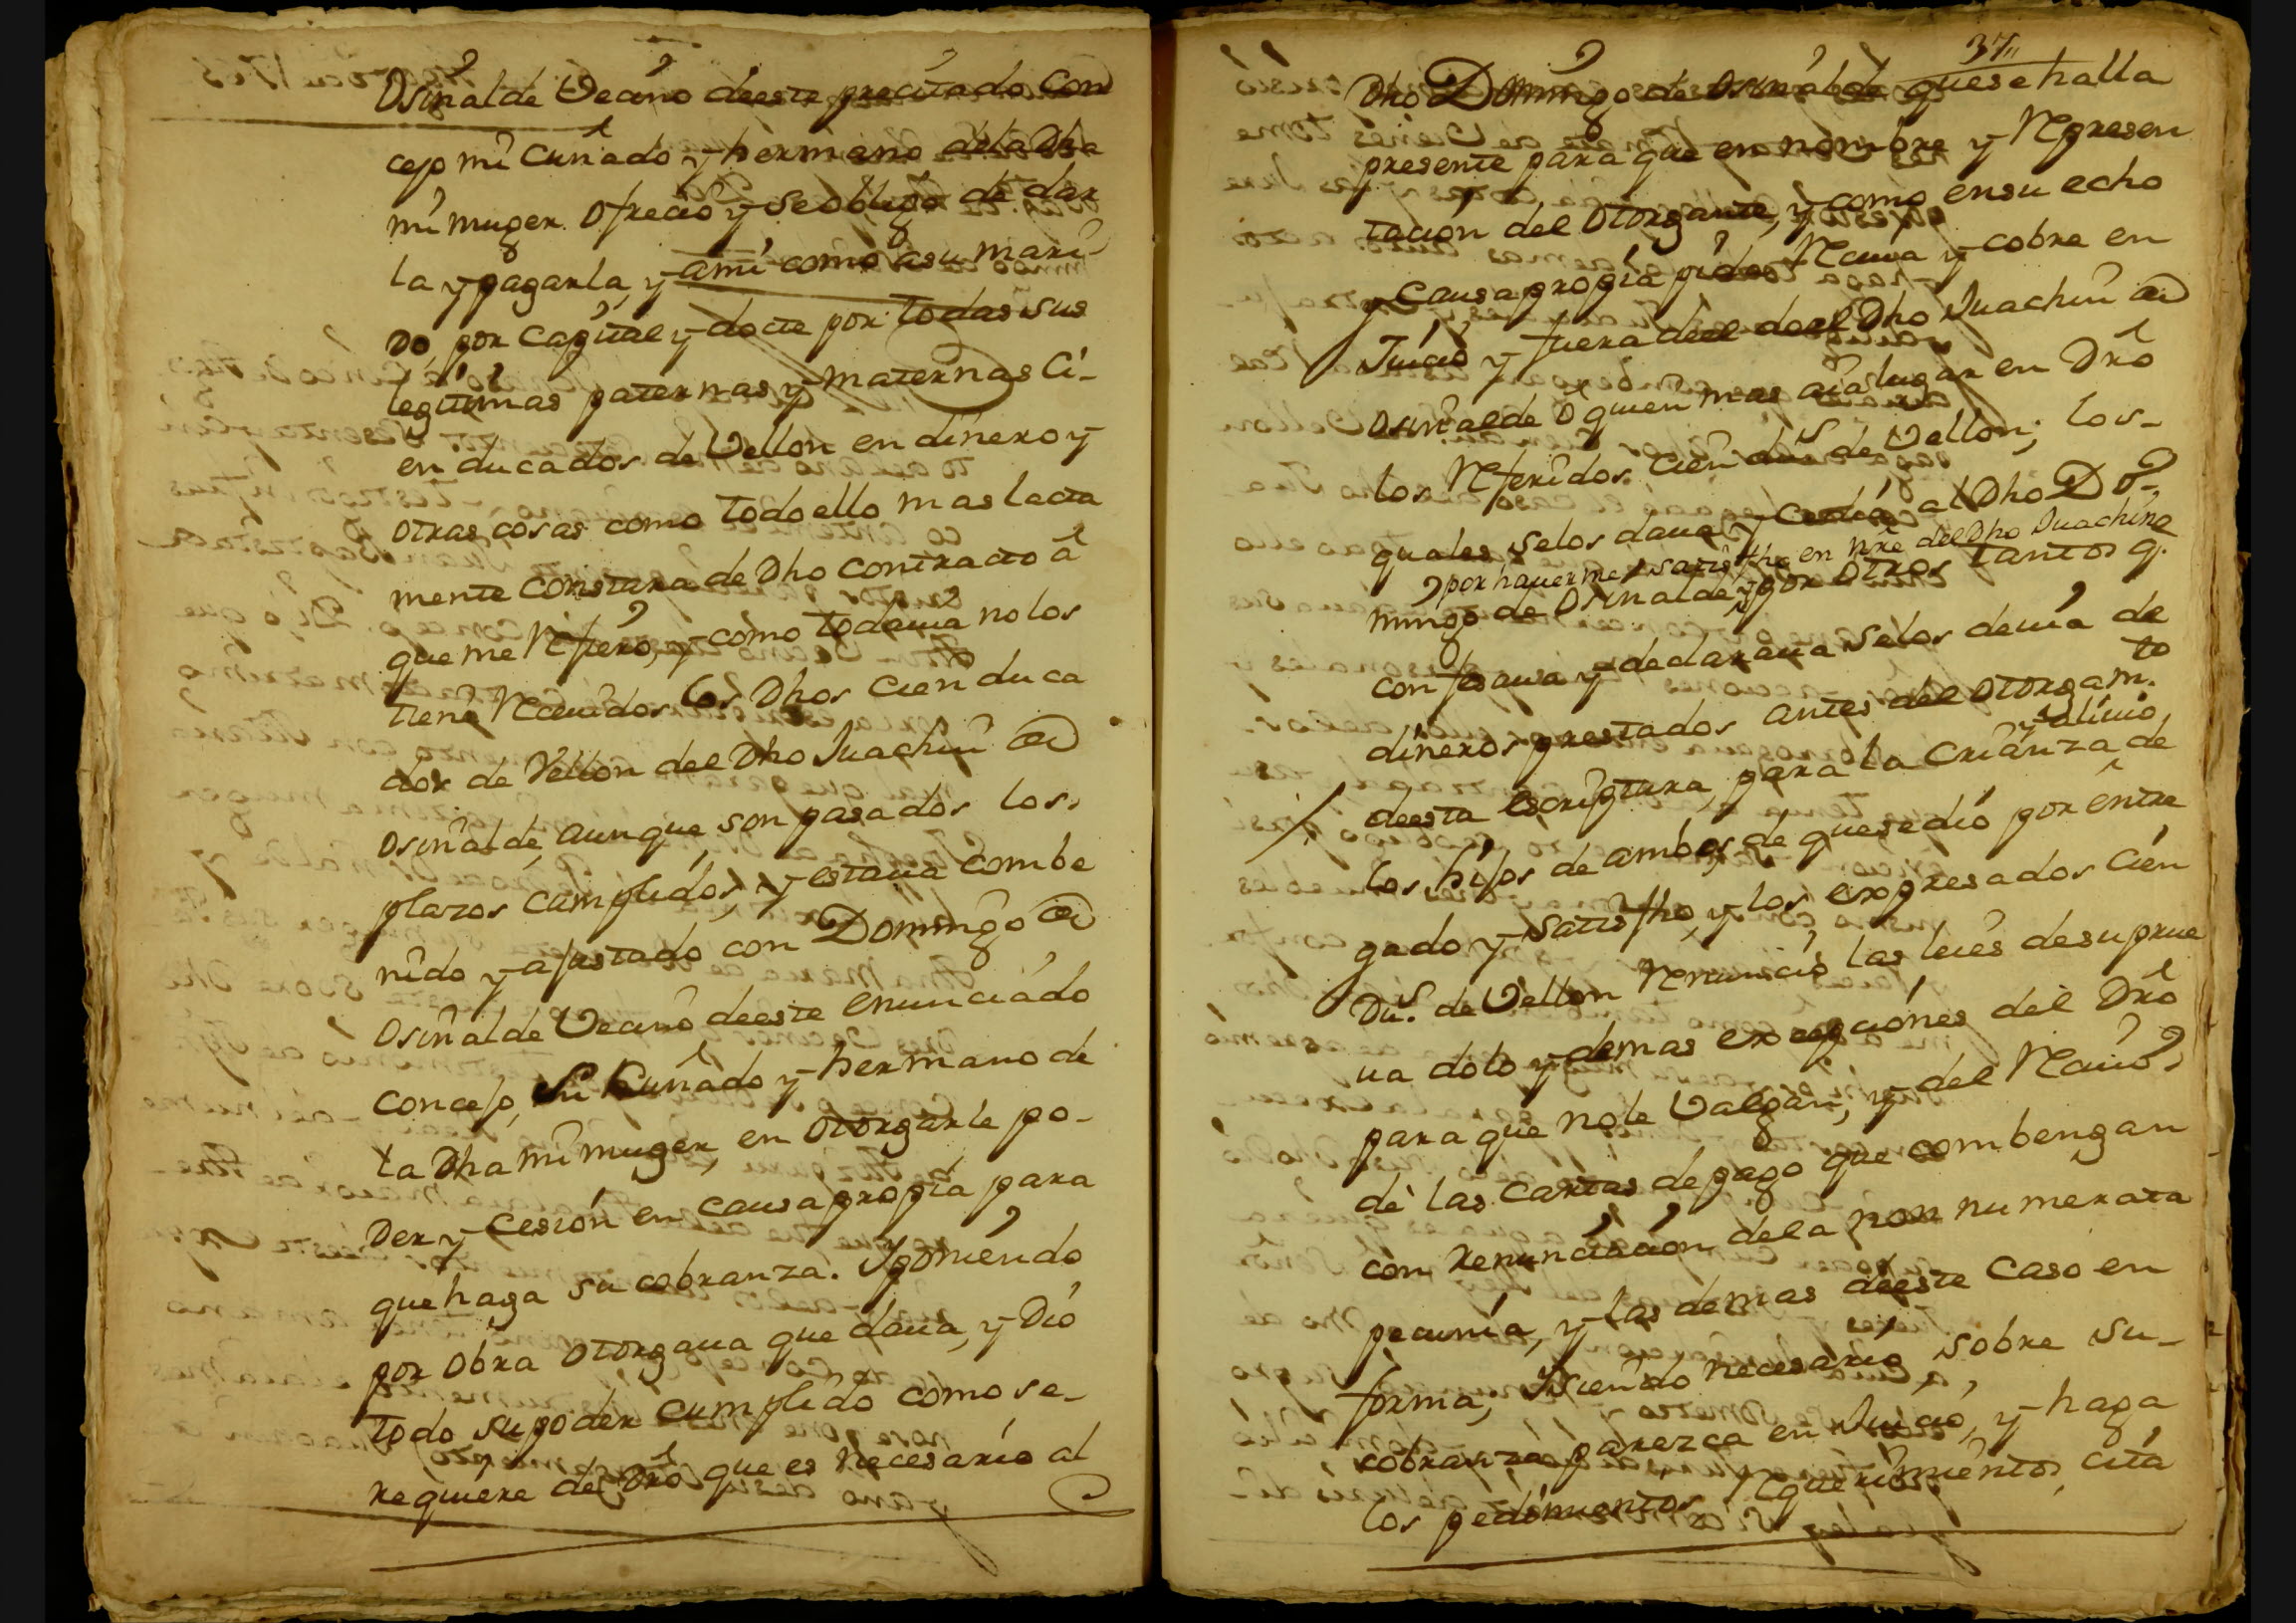 Osinalde Vecino deeste precitado Con
cejo mi Cuñado y hermano dela Dha
mi muger ofrecio y se obligo de dar
la y pagarla, y ami como asu mari
Do, por Capital y docte por todas sus
legitimas paternas y maternas Ci-
en ducados de Vellon en dinero y
otras cosas como todo ello mas lacta
mente constara de Dho contracto â
que me Refiero, y como todauia no los
tiene Reciuidos los Dhos Cien duca
dos de Vellon del Dho Juachin de
Osinalde, aunque son pasados los
plazos cumplidos, y estaua combe
nido y ajustado con Domingo de
Osinalde Vecino deeste enunciado
Concejo, su Cuñado y hermano de
la Dha mi muger, en otorgarle po-
Der y cesión en causa propia para
que haga su cobranza. Y poniendo
por obra otorgaua que daua, y Dio
todo su poder cumplido como se-
requiere de Dro que es necesario al
37
Dho Domingo de Osinalde que se halla
presente para que en nombre y Represen
tacion del otorgante, y como en su echo
y Causa propia pida Reciua y cobre en
Juicio y fuera deel del Dho Juachin de
Osinalde ô quien mas aia lugar en Dro
los Referidos Cien dus de Vellon; los-
quales selos daua y Cedia al Dho Do-
por hauerme satisfho en nre del Dho Juachin
mingo de Osinalde, y por otros tantos q.
confesaua y declaraua selos deuia de
dineros prestados antes del otorgam.to
y aliuio
deesta Escriptura, para la Crianza de
los hijos de ambos, de que se dio por entre
gado y satisfho, y los expresados Cien
Dus. de Vellon Renunció las leies de su prue
ua dolo y demas excepciones del Dro
para que no le Valgan, y del Reciuo
dè las Cartas de pago que combengan
con renunciacion dela non numerata
pecunia, y las demas deeste caso en
forma, Y siendo necesario, sobre su-
cobranza parezca en Juicio, y haga
los pedimientos, Requerimientos, cita